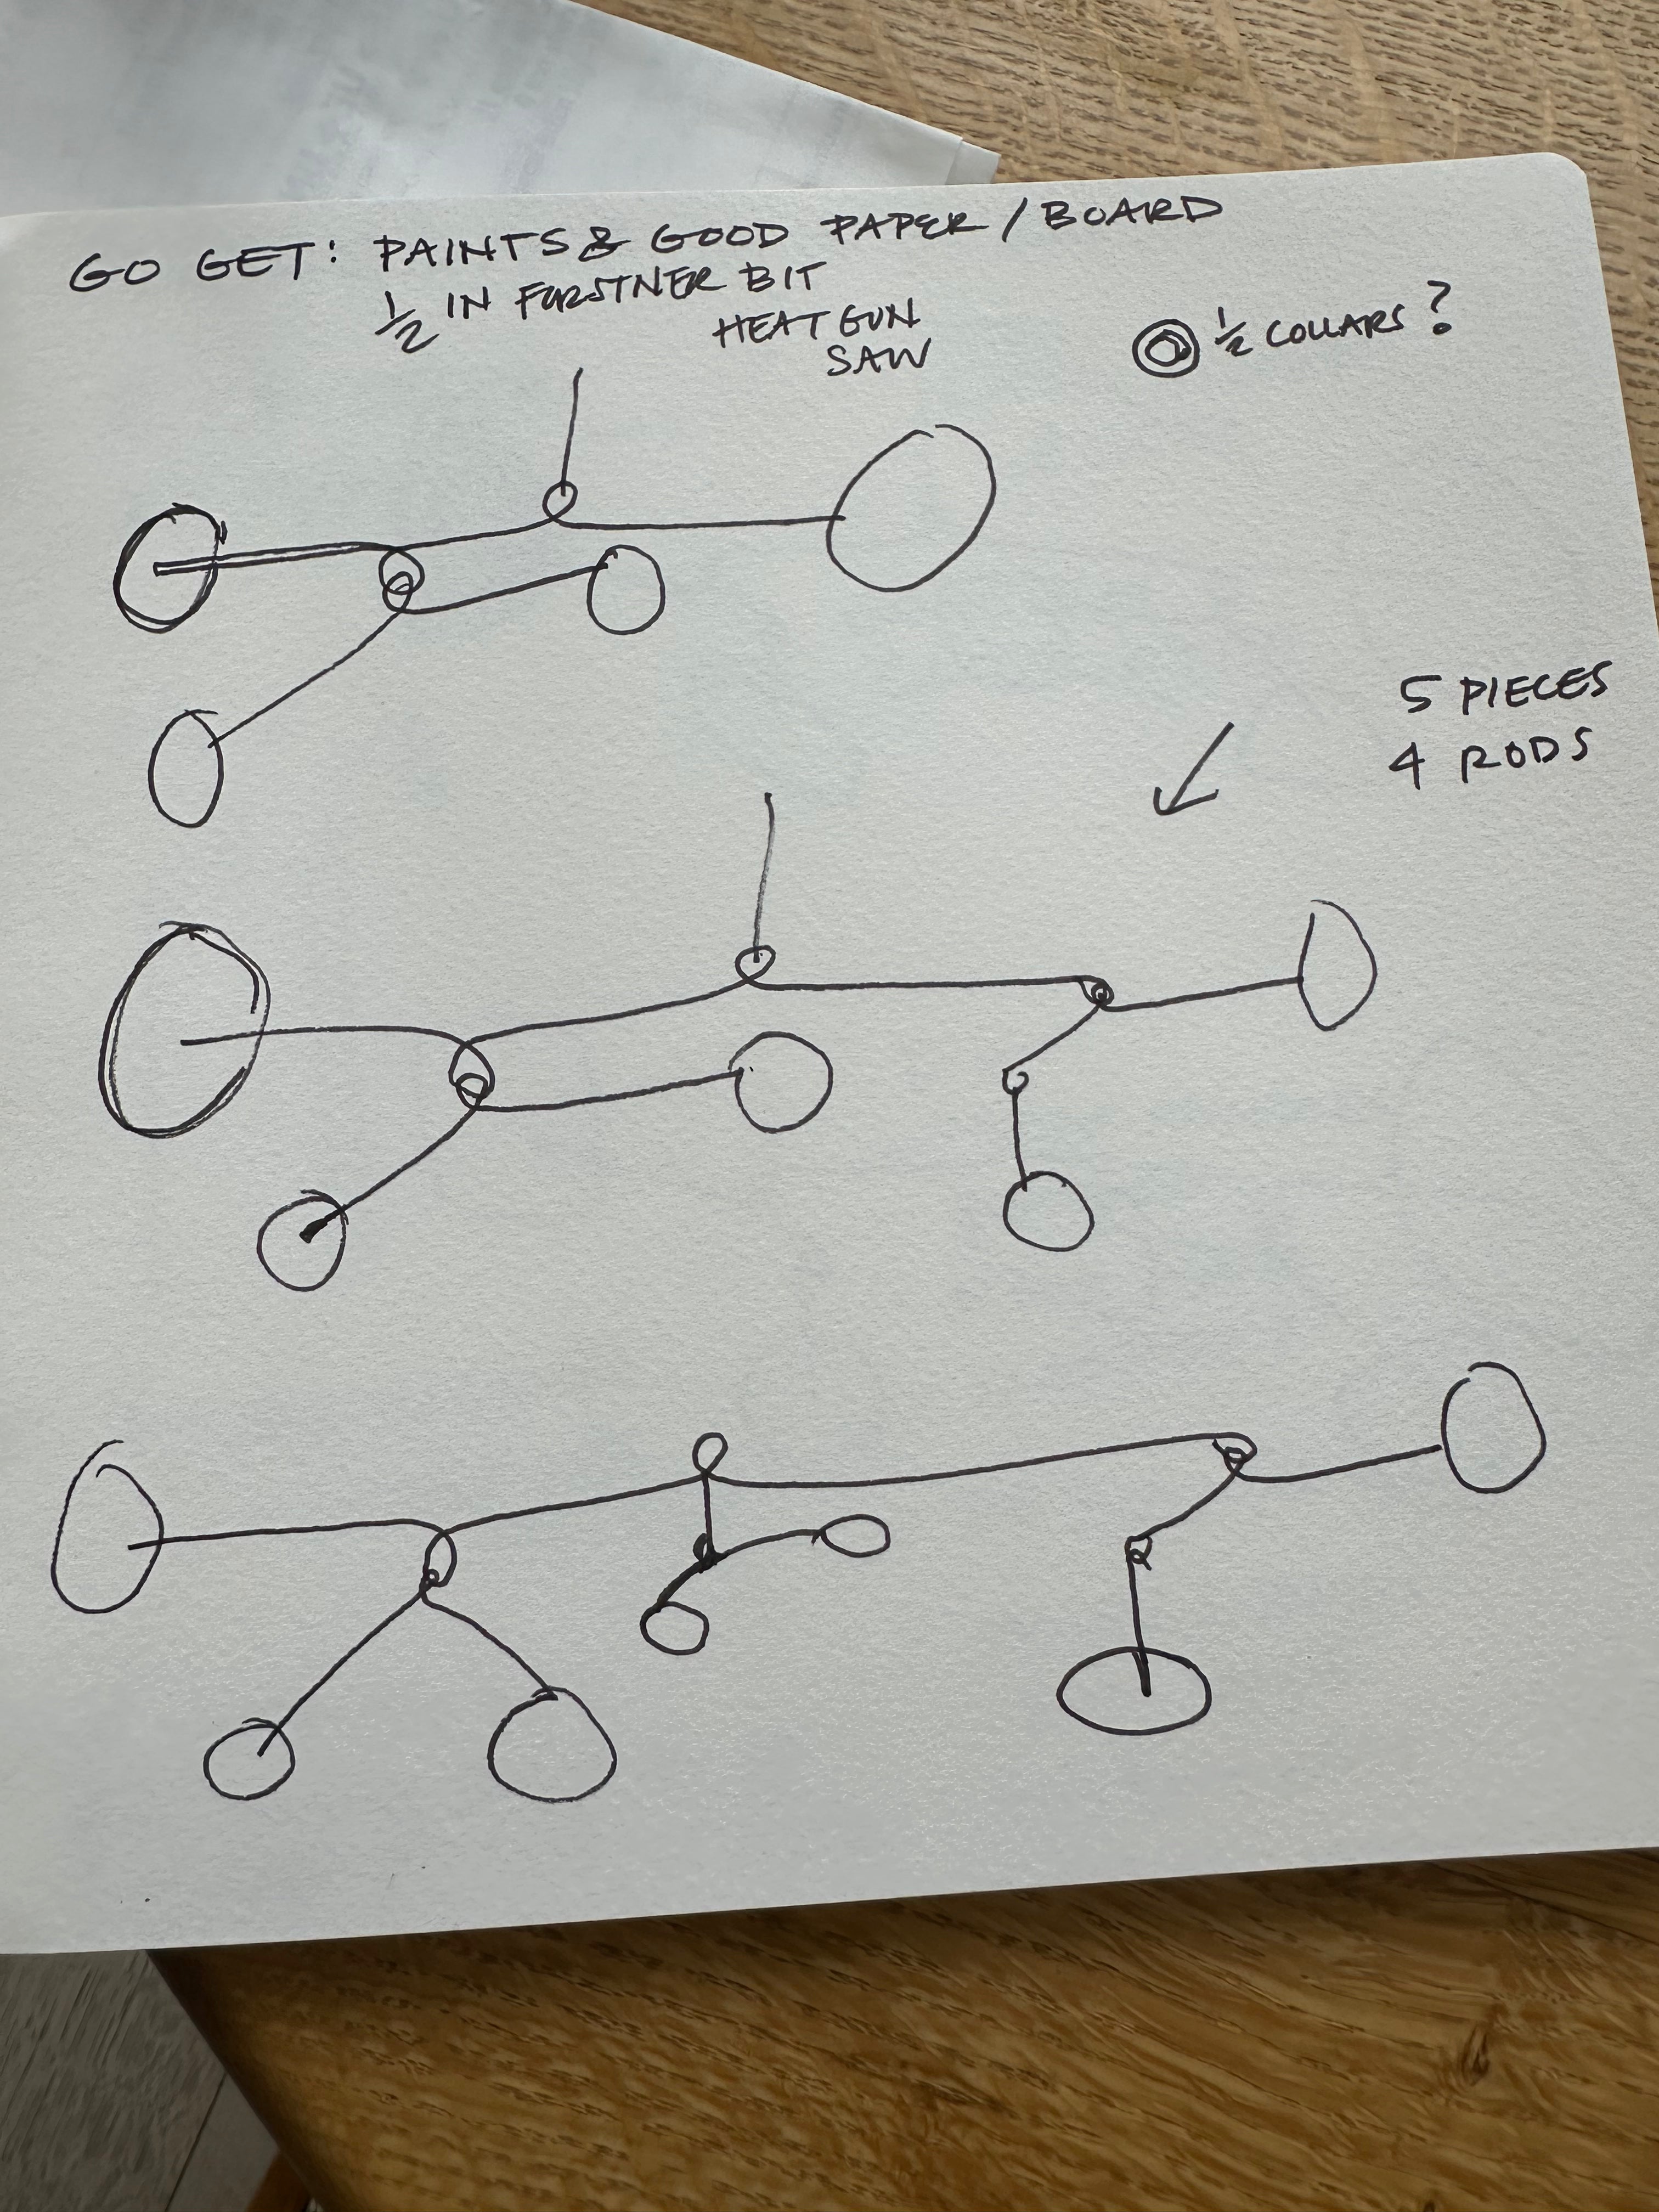 GO GET: PAINTS & GOOD PAPER / BOARD
1/2 IN FORSTNER BIT
HEAT GUN
SAW
1/2 COLLARS?
5 PIECES
4 RODS